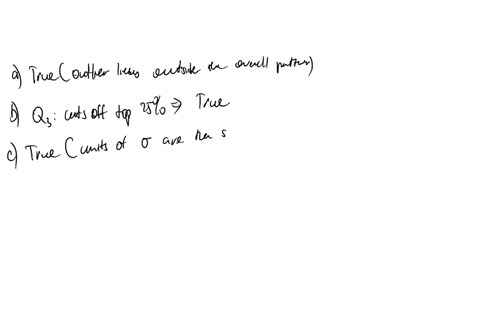 a) True (outlier lies outside the overall pattern)
b) Q₃: cuts off top 25% ⇒ True
c) True (units of σ are the s